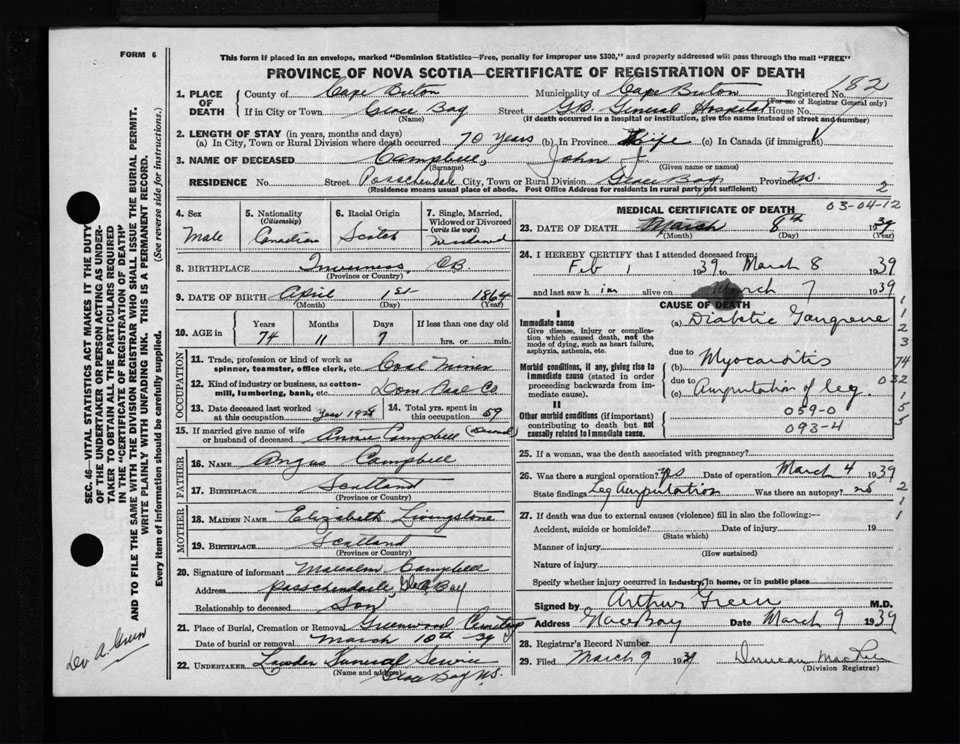 FORM 6
This form if placed in an envelope, marked "Dominion Statistics—Free, penalty for improper use $300," and properly addressed will pass through the mail "FREE"
PROVINCE OF NOVA SCOTIA—CERTIFICATE OF REGISTRATION OF DEATH
182
1. PLACE OF DEATH County of Cape Breton Municipality of Cape Breton Registered No.
(For use of Registrar General only)
If in City or Town Glace Bay Street G.B. General Hospital House No.
(Name) (If death occurred in a hospital or institution, give the name instead of street and number)
2. LENGTH OF STAY (in years, months and days)
(a) In City, Town or Rural Division where death occurred 70 years (b) In Province Life (c) In Canada (if immigrant)
3. NAME OF DECEASED Campbell, John J.
(Surname) (Given name or names)
RESIDENCE No. Street Passchendale City, Town or Rural Division Glace Bay Province N.S.
(Residence means usual place of abode. Post Office Address for residents in rural parts not sufficient) 2
4. Sex Male
5. Nationality (Citizenship) Canadian
6. Racial Origin Scotch
7. Single, Married, Widowed or Divorced (write the word) Widowed
8. BIRTHPLACE Inverness, CB.
(Province or Country)
9. DATE OF BIRTH April 1st 1864
(Month) (Day) (Year)
10. AGE in Years Months Days If less than one day old
74 11 7 hrs. or min.
OCCUPATION
11. Trade, profession or kind of work as spinner, teamster, office clerk, etc. Coal Miner
12. Kind of industry or business, as cotton-mill, lumbering, bank, etc. Dom Coal Co.
13. Date deceased last worked at this occupation Year 1928 14. Total yrs. spent in this occupation 59
15. If married give name of wife or husband of deceased Annie Campbell (Deceased)
FATHER
16. NAME Angus Campbell
17. BIRTHPLACE Scotland
(Province or Country)
MOTHER
18. MAIDEN NAME Elizabeth Livingstone
19. BIRTHPLACE Scotland
(Province or Country)
20. Signature of informant Malcolm Campbell
Address Passchendale, Glace Bay
Relationship to deceased Son
21. Place of Burial, Cremation or Removal Greenwood Cemetery
Date of burial or removal March 10th 39
22. UNDERTAKER Lawder Funeral Service
(Name and address) Glace Bay N.S.
03-04-12
MEDICAL CERTIFICATE OF DEATH
23. DATE OF DEATH March 8th 1939
(Month) (Day) (Year)
24. I HEREBY CERTIFY that I attended deceased from
Feb 1 1939 to March 8 1939
and last saw h im alive on March 7 1939
CAUSE OF DEATH
I
Immediate cause (a) Diabetic Gangrene
Give disease, injury or complication which caused death, not the mode of dying, such as heart failure, asphyxia, asthenia, etc.
due to
Morbid conditions, if any, giving rise to immediate cause (stated in order proceeding backwards from immediate cause). (b) Myocarditis
due to
(c) Amputation of leg
II
Other morbid conditions (if important) contributing to death but not causally related to immediate cause.
059-0
093-4
1
1
2
3
74
032
1
5
5
25. If a woman, was the death associated with pregnancy?
26. Was there a surgical operation? yes Date of operation March 4 1939
State findings Leg Amputation Was there an autopsy? no
2
1
1
27. If death was due to external causes (violence) fill in also the following:—
Accident, suicide or homicide? Date of injury 19
(State which)
Manner of injury
(How sustained)
Nature of injury
Specify whether injury occurred in Industry, in home, or in public place
Signed by Arthur Green M.D.
Address Glace Bay Date March 9 1939
28. Registrar's Record Number
29. Filed March 9 1939 Duncan
(Division Registrar)
SEC. 46—VITAL STATISTICS ACT MAKES IT THE DUTY
OF THE UNDERTAKER OR PERSON ACTING AS UNDER-
TAKER TO OBTAIN ALL THE PARTICULARS REQUIRED
IN THE "CERTIFICATE OF REGISTRATION OF DEATH"
AND TO FILE THE SAME WITH THE DIVISION REGISTRAR WHO SHALL ISSUE THE BURIAL PERMIT.
WRITE PLAINLY WITH UNFADING INK. THIS IS A PERMANENT RECORD.
Every item of information should be carefully supplied. (See reverse side for instructions.)
A. Green